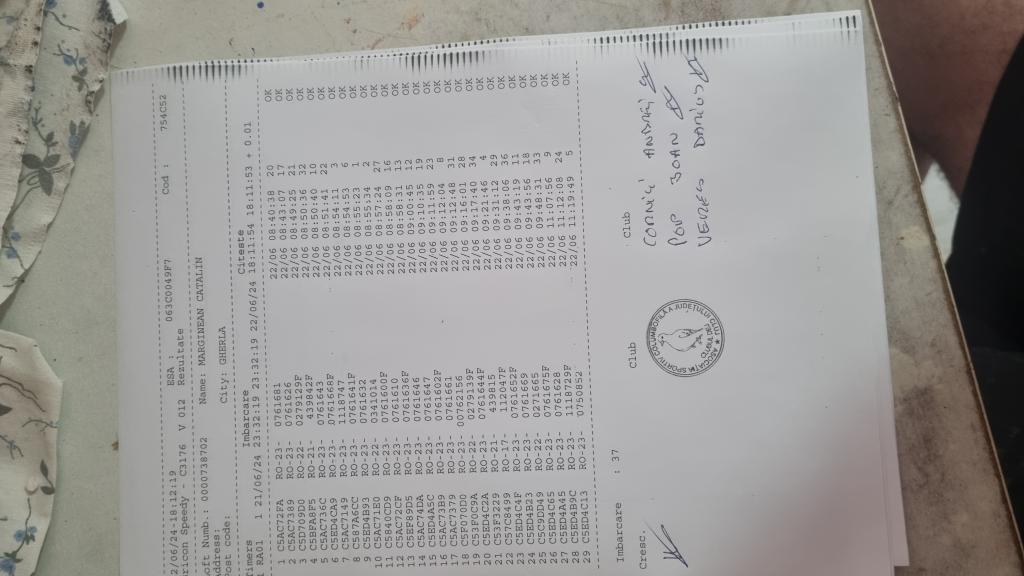 2/06/24-18:12:19 ESA: 063C0049F7 Cod : 754C52
ricon Speedy - C3176 V 012 Rezultate
oft Numb.: 0000738702 Name: MARGINEAN CATALIN
Address:
Post code: City: GHERLA
Timers Imbarcare Citeste
RA01 1 21/06/24 23:32:19 23:32:19 22/06/24 18:11:54 18:11:53 + 0.01
1 C5AC72FA RO-23- 0761681 22/06 08:40:38 20 OK
2 C5AC7389 RO-23- 0761626 22/06 08:43:07 17 OK
3 C5D709D0 RO-22- 0279129F 22/06 08:49:25 21 OK
4 C5BFA8F5 RO-21- 439842F 22/06 08:50:36 32 OK
5 C5AC736C RO-23- 0761643 22/06 08:50:40 10 OK
6 C5ED4CA9 RO-23- 0761668F 22/06 08:51:41 22 OK
7 C5AC7149 RO-23- 1118747 22/06 08:54:11 3 OK
8 C587A6CC RO-23- 0761641F 22/06 08:54:53 6 OK
9 C5ED4B93 RO-23- 0761632 22/06 08:55:23 1 OK
10 C5AC71E0 RO-22- 0341014 22/06 08:55:34 2 OK
11 C5840CD9 RO-23- 0761600F 22/06 08:57:24 27 OK
12 C5AC72CF RO-23- 0761610 22/06 08:58:09 16 OK
13 C5EF89D5 RO-23- 0761636F 22/06 08:58:31 13 OK
14 C5AC74DA RO-23- 0761646 22/06 09:00:45 12 OK
15 C5ED4A5C RO-23- 0761647 22/06 09:10:35 19 OK
16 C5AC73B9 RO-23- 0761602F 22/06 09:11:59 23 OK
17 C5AC7379 RO-23- 0761661 22/06 09:12:04 8 OK
18 C5F070D0 RO-23- 00762156 22/06 09:12:48 31 OK
19 C53F0C9A RO-22- 0279139F 22/06 09:16:01 28 OK
20 C5ED4C2A RO-23- 0761644F 22/06 09:17:40 34 OK
21 C53F3229 RO-21- 439815 22/06 09:21:46 4 OK
22 C57C8499 RO-17- 112047F 22/06 09:31:12 29 OK
23 C5ED4C4F RO-23- 0761652F 22/06 09:38:06 36 OK
24 C5ED4B23 RO-23- 0761669 22/06 09:43:19 11 OK
25 C5C9DD49 RO-22- 0271665 22/06 09:43:56 18 OK
26 C5ED4C65 RO-23- 0761675F 22/06 09:48:31 33 OK
27 C5ED4A45 RO-23- 0761628 22/06 11:07:56 9 OK
28 C5ED4B9C RO-23- 1118729F 22/06 11:12:08 24 OK
29 C5ED4C13 RO-23- 0750852 22/06 11:19:49 5 OK
Imbarcare : 37
Cresc. Club Club
ANDREI
POP IOAN
VEREȘ DARIUS
SPORTIV COLUMBOFILĂ A JUDEȚULUI CLUJ